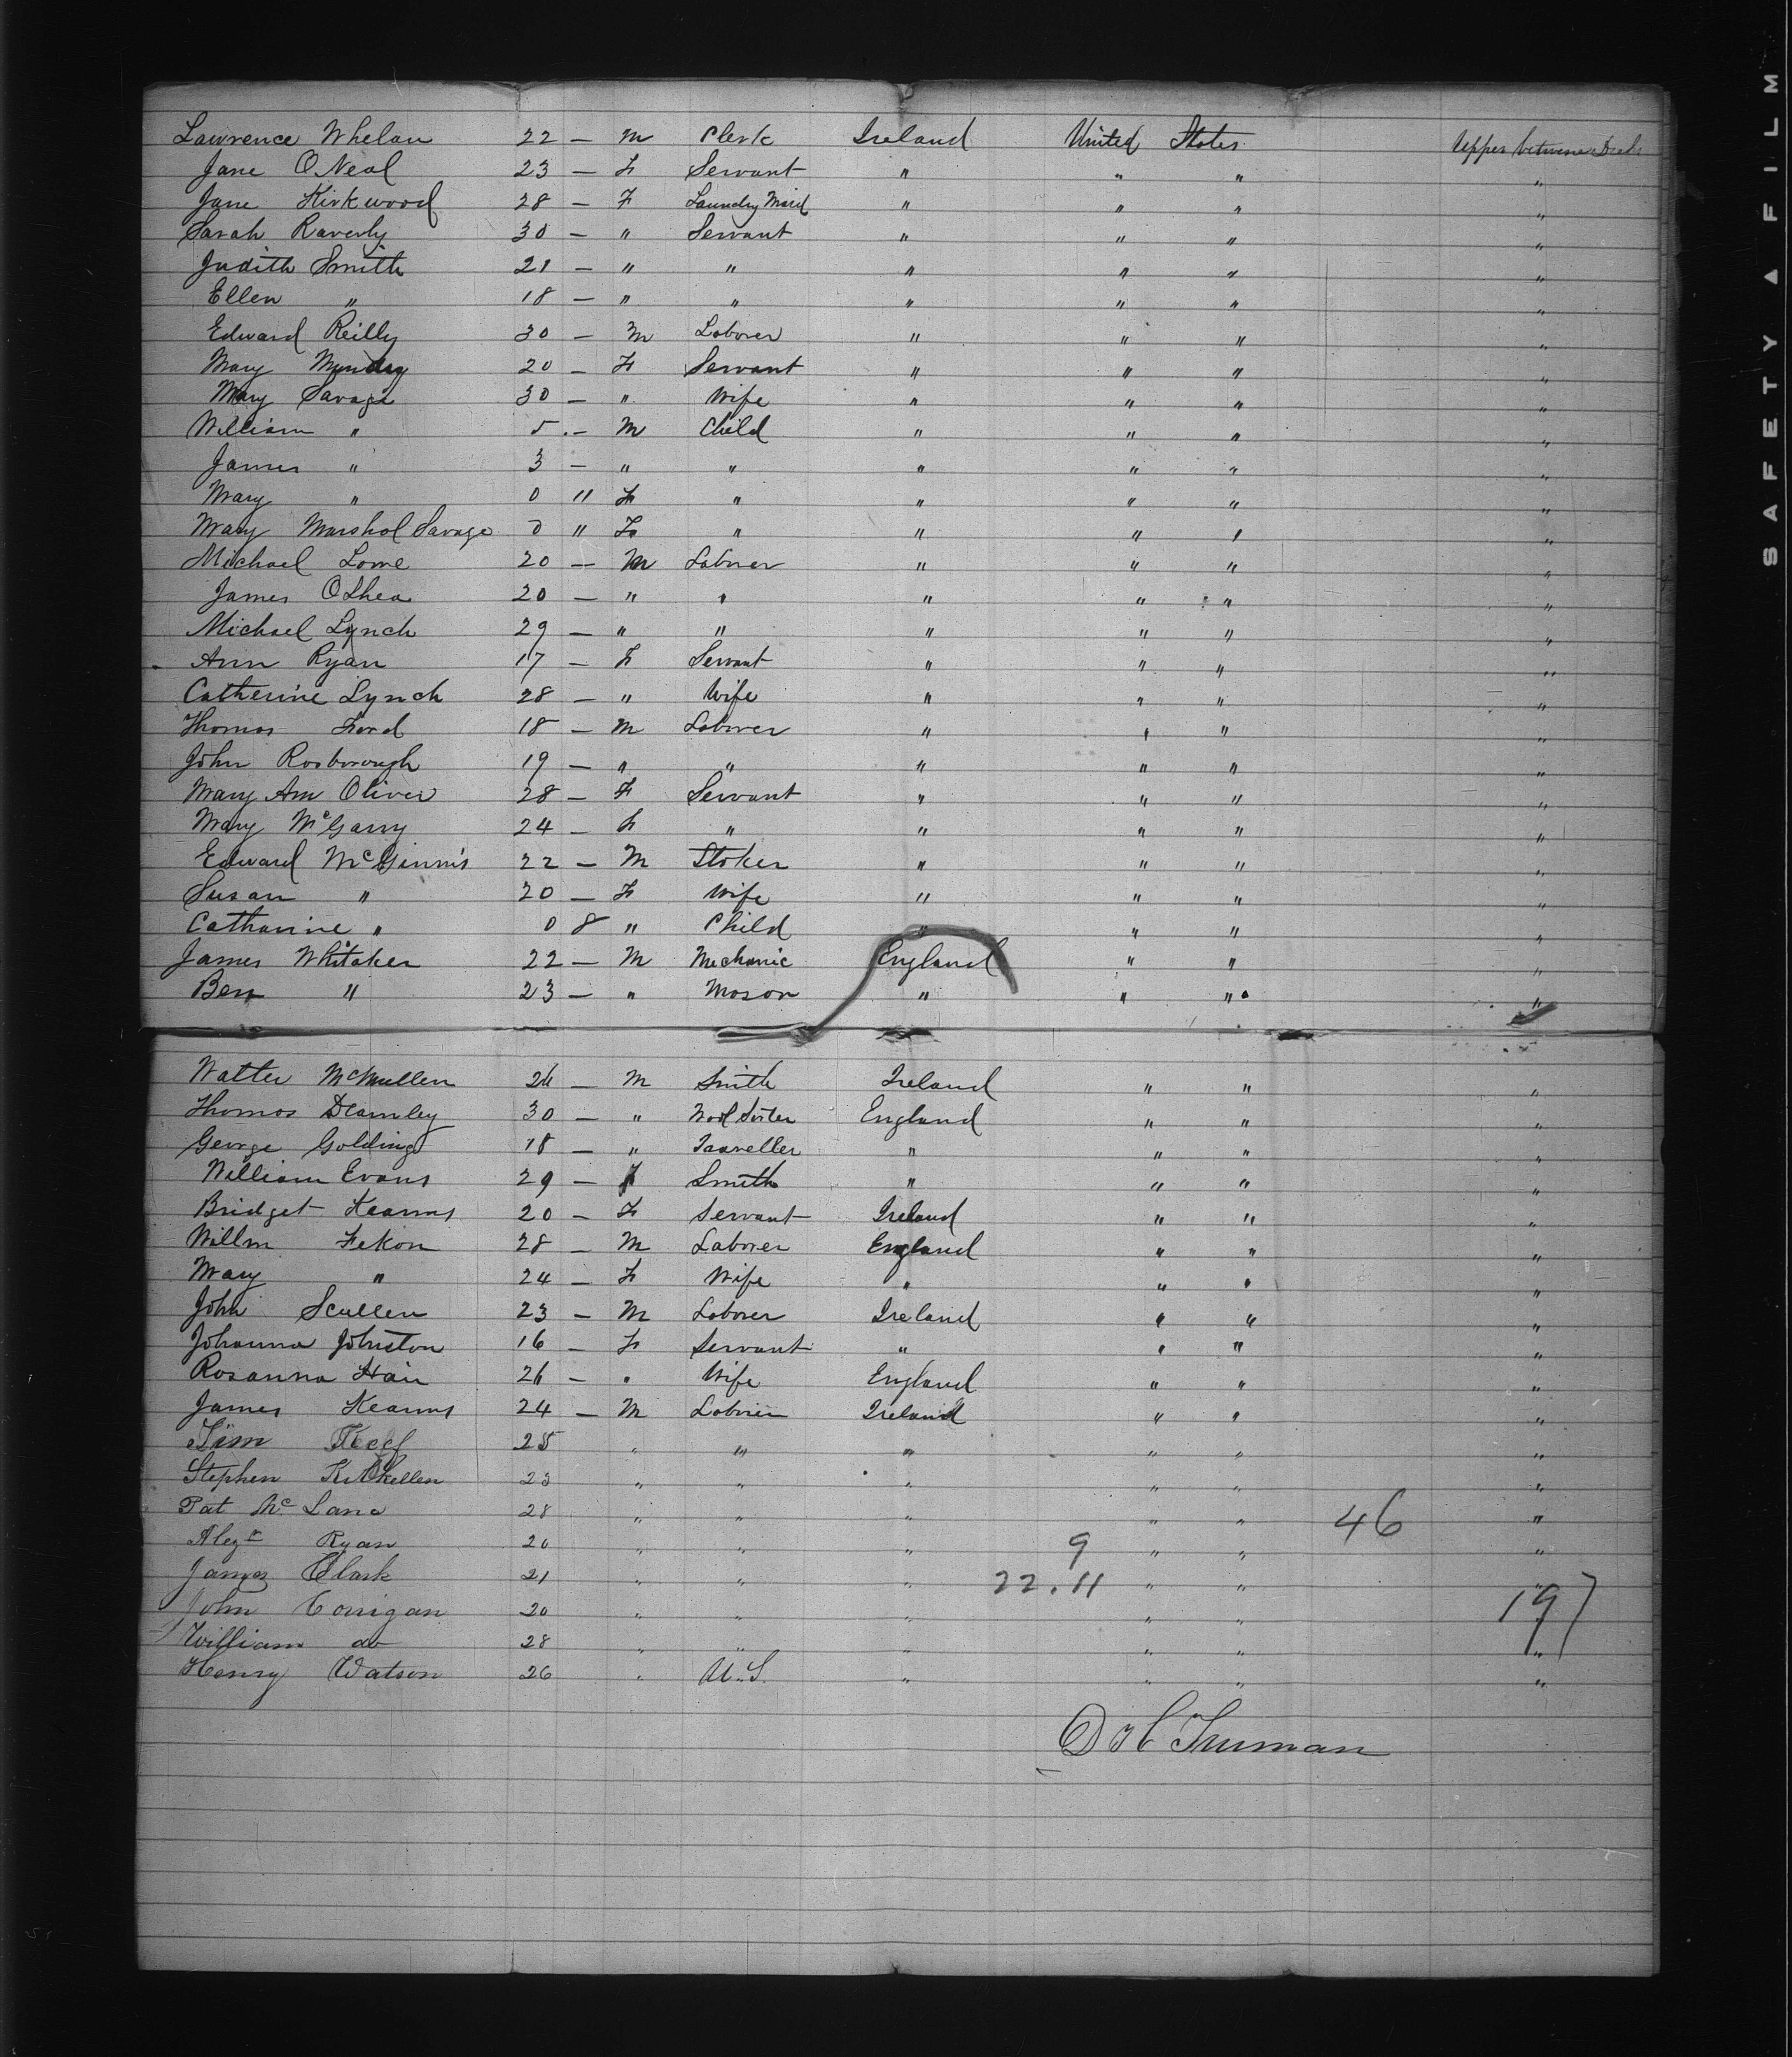 Lawrence Whelan 22 — M Clerk Ireland United States Upper between Decks
Jane ONeal 23 — F Servant " " " "
Jane Kirkwood 28 — F Laundry Maid " " " "
Sarah Raverly 30 — " Servant " " " "
Judith Smith 21 — " " " " " "
Ellen " 18 — " " " " " "
Edward Reilly 30 — M Laborer " " " "
Mary 20 — F Servant " " " "
Mary Savage 30 — " Wife " " " "
William " 5 — M Child " " " "
James " 3 — " " " " " "
Mary " 0 11 F " " " " "
Mary Marshal Savage 0 11 F " " " " "
Michael Lowe 20 — M Laborer " " " "
James OShea 20 — " " " " " "
Michael Lynch 29 — " " " " " "
Ann Ryan 17 — F Servant " " " "
Catherine Lynch 28 — " Wife " " " "
Thomas Ford 18 — M Laborer " " " "
John Rosborough 19 — " " " " " "
Mary Ann Oliver 28 — F Servant " " " "
Mary McGarry 24 — F " " " " "
Edward McGinnis 22 — M Stoker " " " "
Susan " 20 — F Wife " " " "
Catharine " 0 8 " Child " " " "
James Whitaker 22 — M Mechanic England " " "
Ben " 23 — " Mason " " " "
Walter McMullen 26 — M Smith Ireland " " "
Thomas 30 — " Wool Sorter England " " "
George Golding 18 — " Traveller " " " "
William Evans 29 — Smith " " " "
Bridget Kearns 20 — F Servant Ireland " " "
Willm Fekon 28 — M Laborer England " " "
Mary " 24 — F Wife " " " "
John Scullen 23 — M Laborer Ireland " " "
Johanna Johnston 16 — F Servant " " " "
Rosanna Hair 26 — " Wife England " " "
James Kearns 24 — M Laborer Ireland " " "
Tim Keef 25 " " " " " "
Stephen 23 " " " " " "
Pat Mc Lane 28 " " " " " 46 "
Alexr Ryan 20 " " " 9 " " "
James Clark 21 " " " 22.11 " " "
John Corrigan 20 " " " " " 197
William do 28 " " " " " "
Henry Watson 26 " U.S. " " " "
D H Truman
SAFETY ▲ FILM